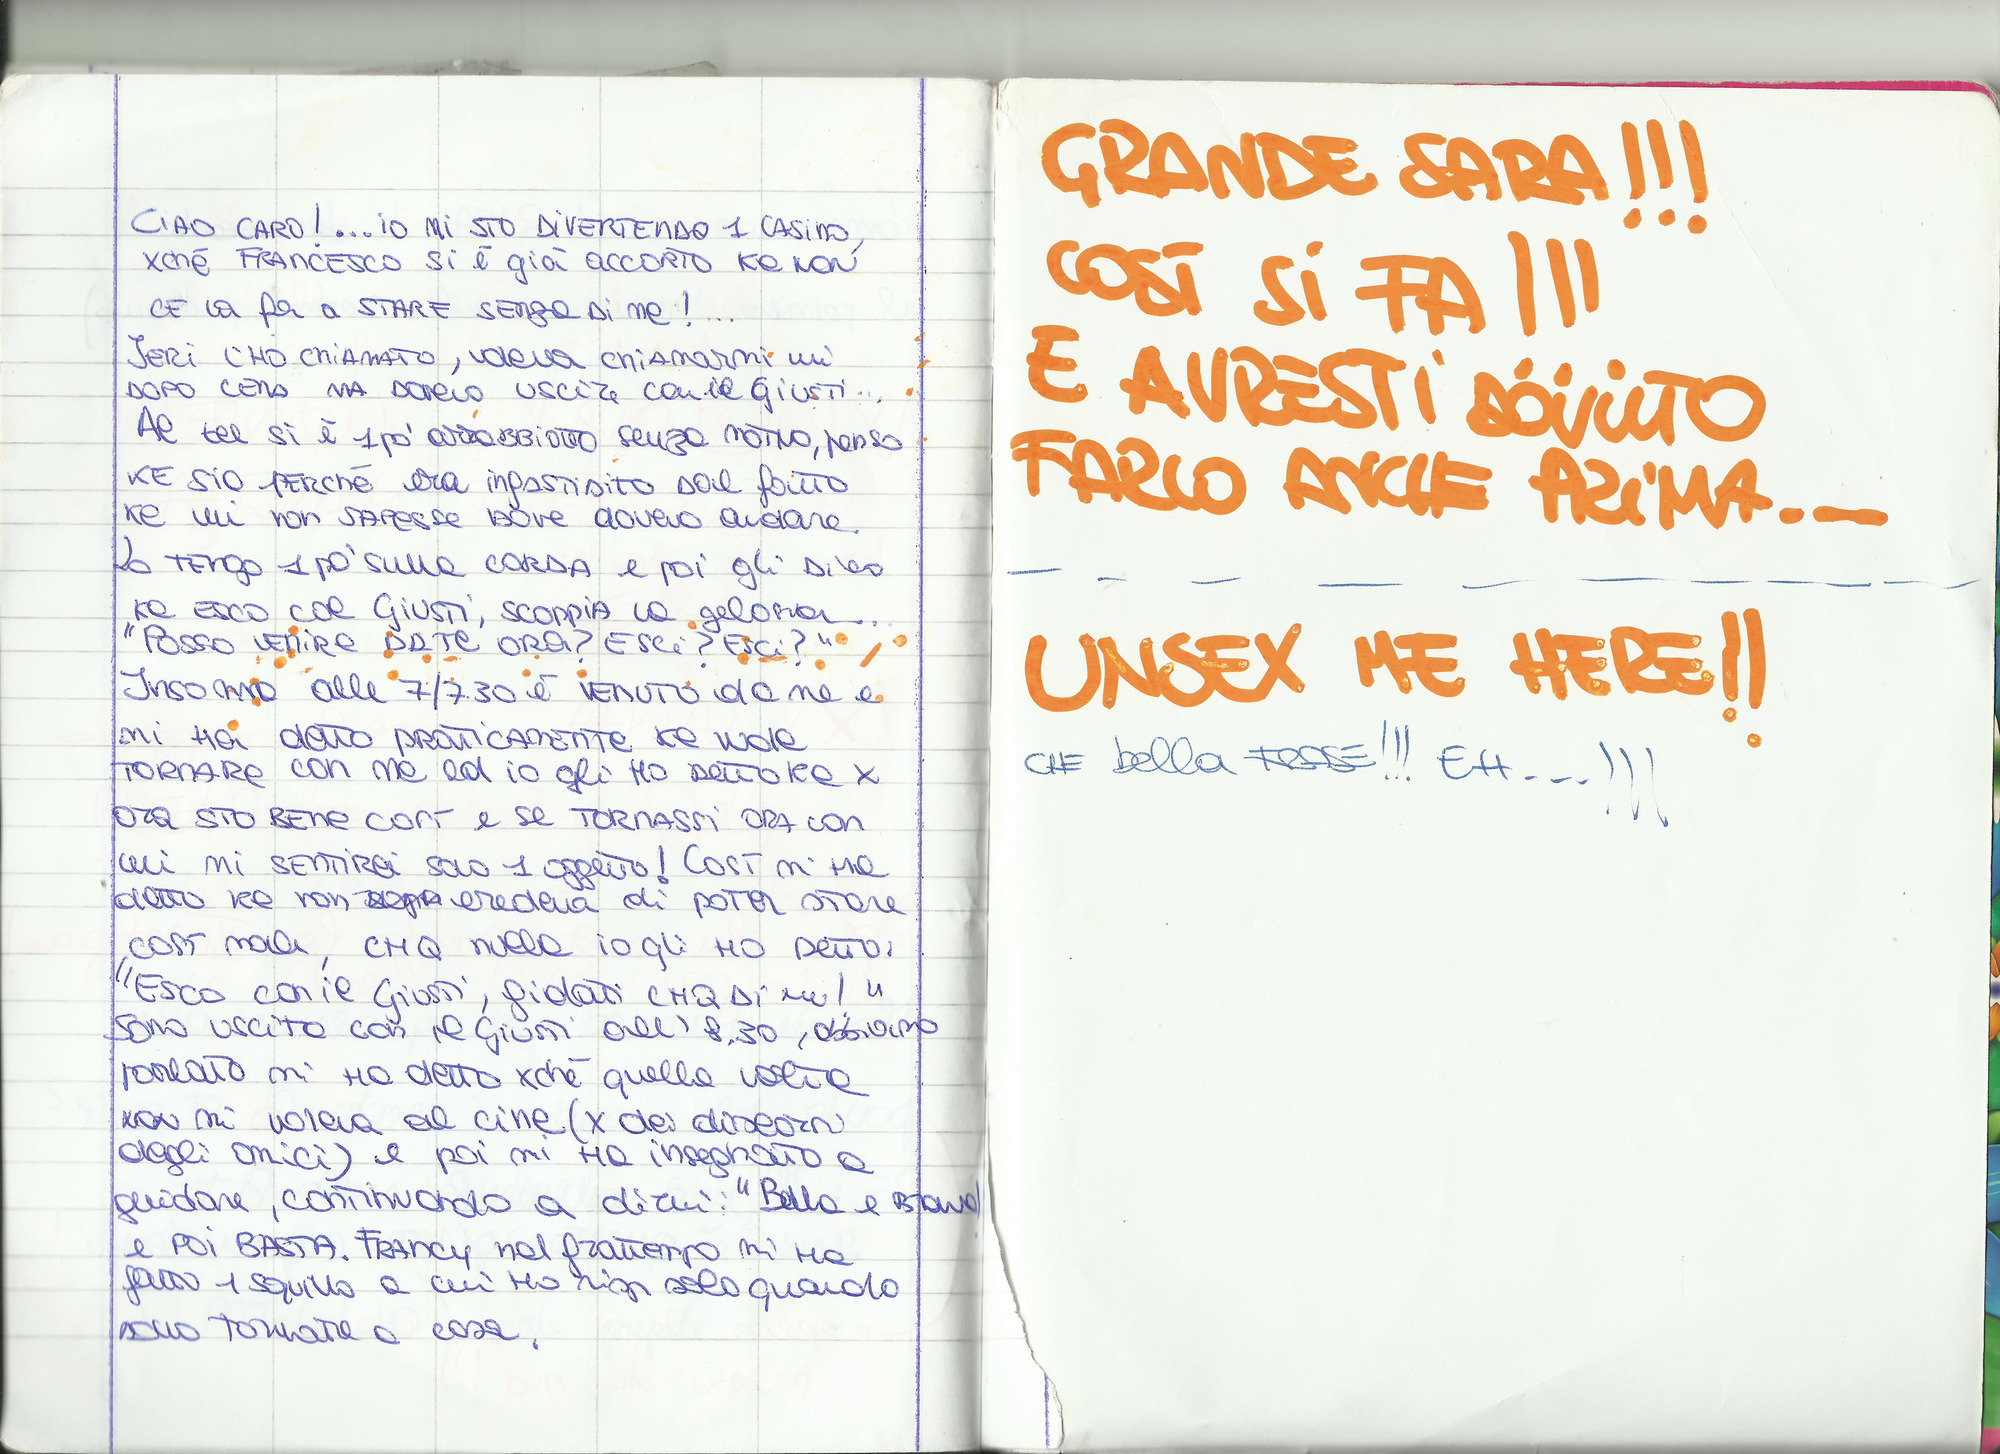 CIAO CARO!...iO Mi STO DiVERTENDO 1 CASiNO,
xché FRANCESCO Si è già ACCORTO Ke NON
CE la fa a STARE SENZA Di me!...
IERI C'HO CHiAMATO, voleva CHiAMARMi lui
DOPO CENA MA DOVEVO USCiRE con il GiUSTi...
Al tel Si è 1 po' ARRABBIATO senza MOTIVO, penso
KE SiA PERCHé era iNFASTiDiTO DAl fatto
Ke lui non SAPESSE DOVE dovevo andare.
Lo TENGO 1 po' Sulla CORDA e poi gli DiCO
Ke ESCO col GiUSTi, SCOPPiA la gelosia...
"POSSO VENiRE DA TE ORA? ESCi? ESCi?"
INSOMMA alle 7/7.30 è VENUTO da me e
mi HA detto PRATiCAMENTE Ke vuole
TORNARE con me ed io gli HO DETTO Ke x
ORA STO BENE COSì e SE TORNASSi ORA con
lui mi SENTiREi solo 1 oggetto! COSì mi HA
detto Ke non credeva di POTER stare
COSì male, CHQ nulla io gli HO DETTO:
"ESCO con il GiUSTi, fidati CHQ Di me!"
Sono uscita con il GiUSTi all' 8.30, abbiamo
parlato mi HA detto xché quella volta
non mi voleva al cine (x dei discorsi
degli amici) e poi mi HA insegnato a
guidare, CONTiNUANDO a dirmi: "Bella e BRAVA!
e POi BASTA. FRANCY nel frattempo mi HA
fatto 1 squillo a cui HO risp solo quando
sono TORNATA a casa.
GRANDE SARA!!!
COSÌ Si FA!!!
E AVRESTi DOVUTO
FARLO ANCHE PRiMA...—
UNSEX ME HERE!!
CHE bella FRASE!!! EH...!!!